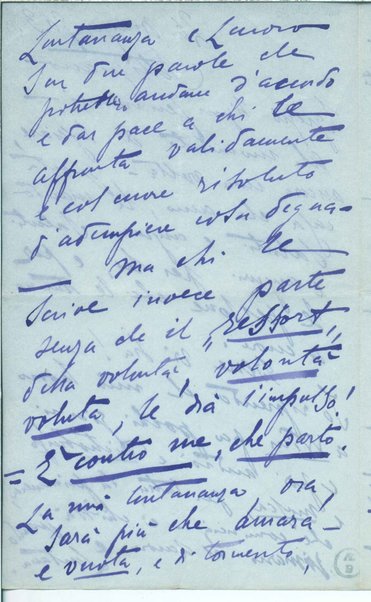 Lontananza e Lavoro
son due parole che
potrebbero andare d'accordo
e dar pace a chi le
affronta validamente
e col cuore risoluto
d'adempiere cosa degna –
— ma chi le
scrive invece parte
senza che il „ressort„
della volontà, volontà
voluta, le dia l'impulso!
= È contro me, che parto.
La mia lontananza, ora,
sarà più che amara –
e vuota, e di tormento,